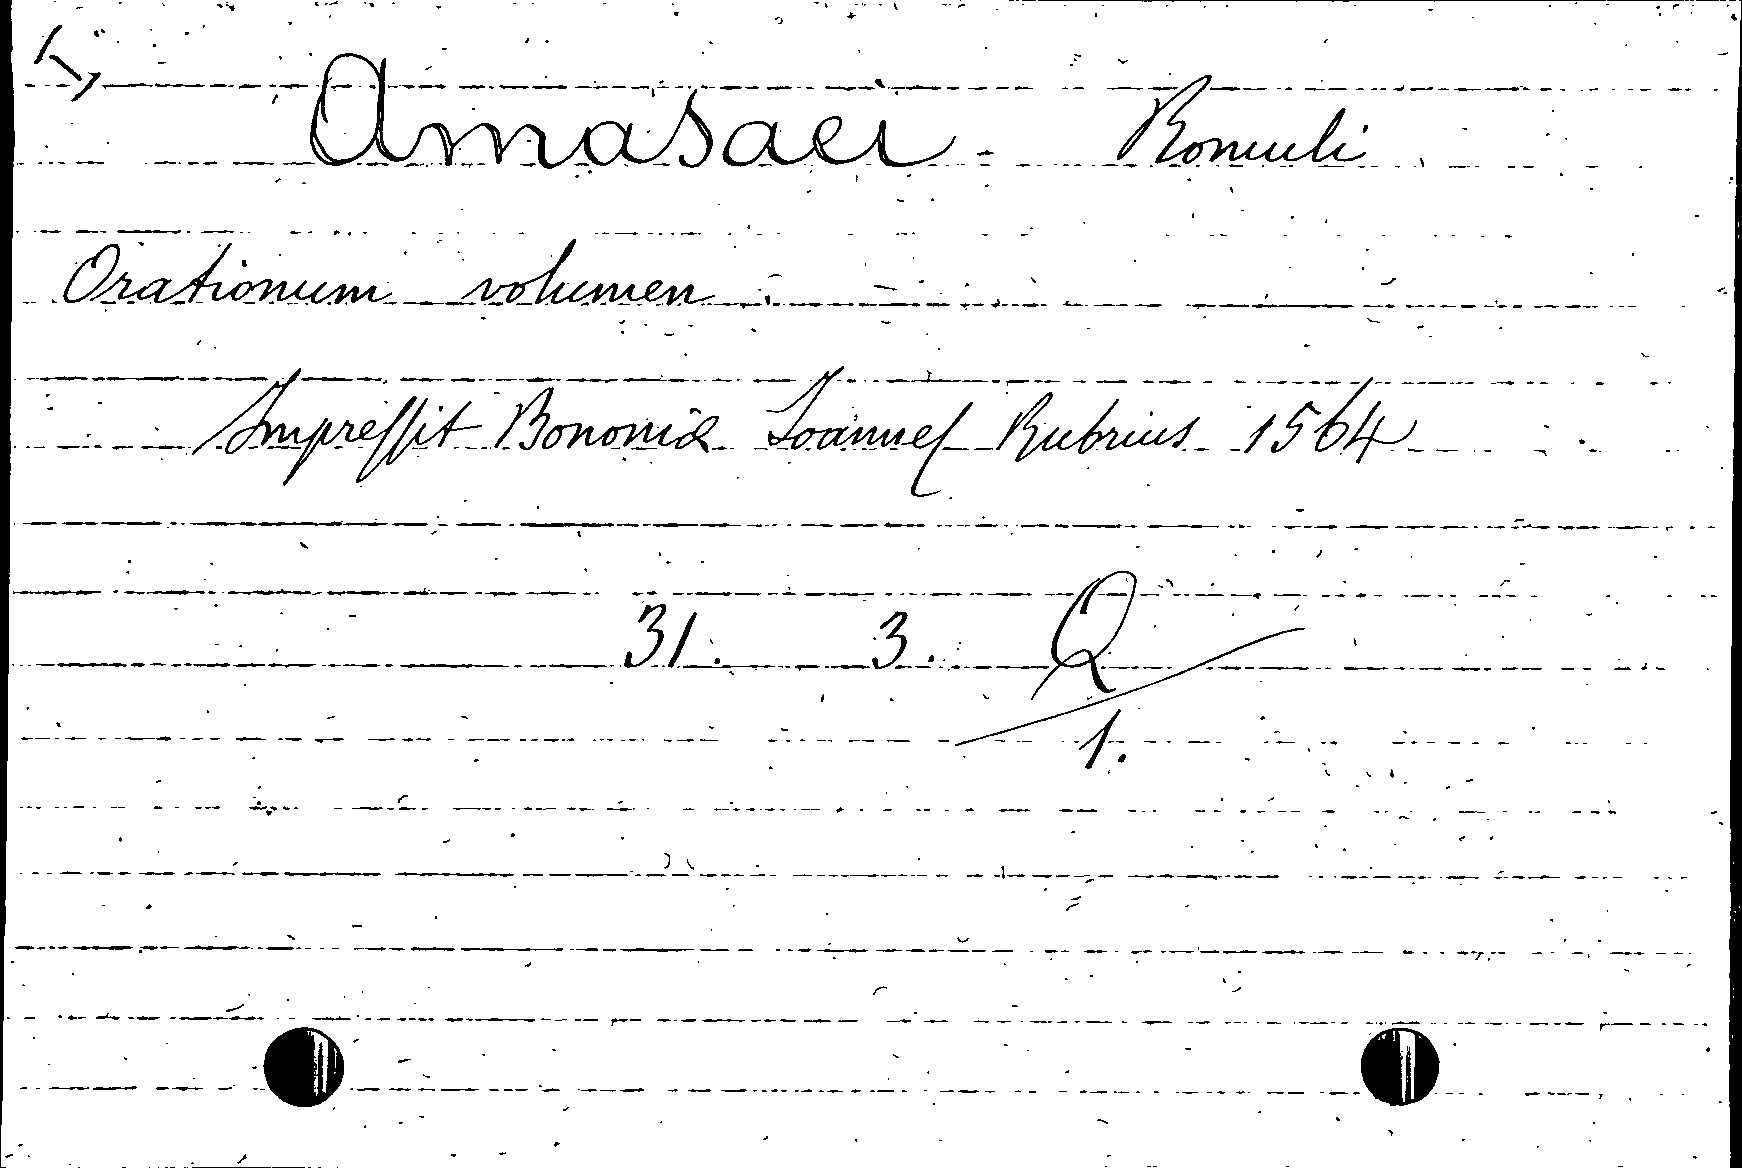 Amasaei Romuli
Orationum volumen
Impreſſit Bononiæ Ioanneſ Rubrius 1564
31. 3. Q
1.